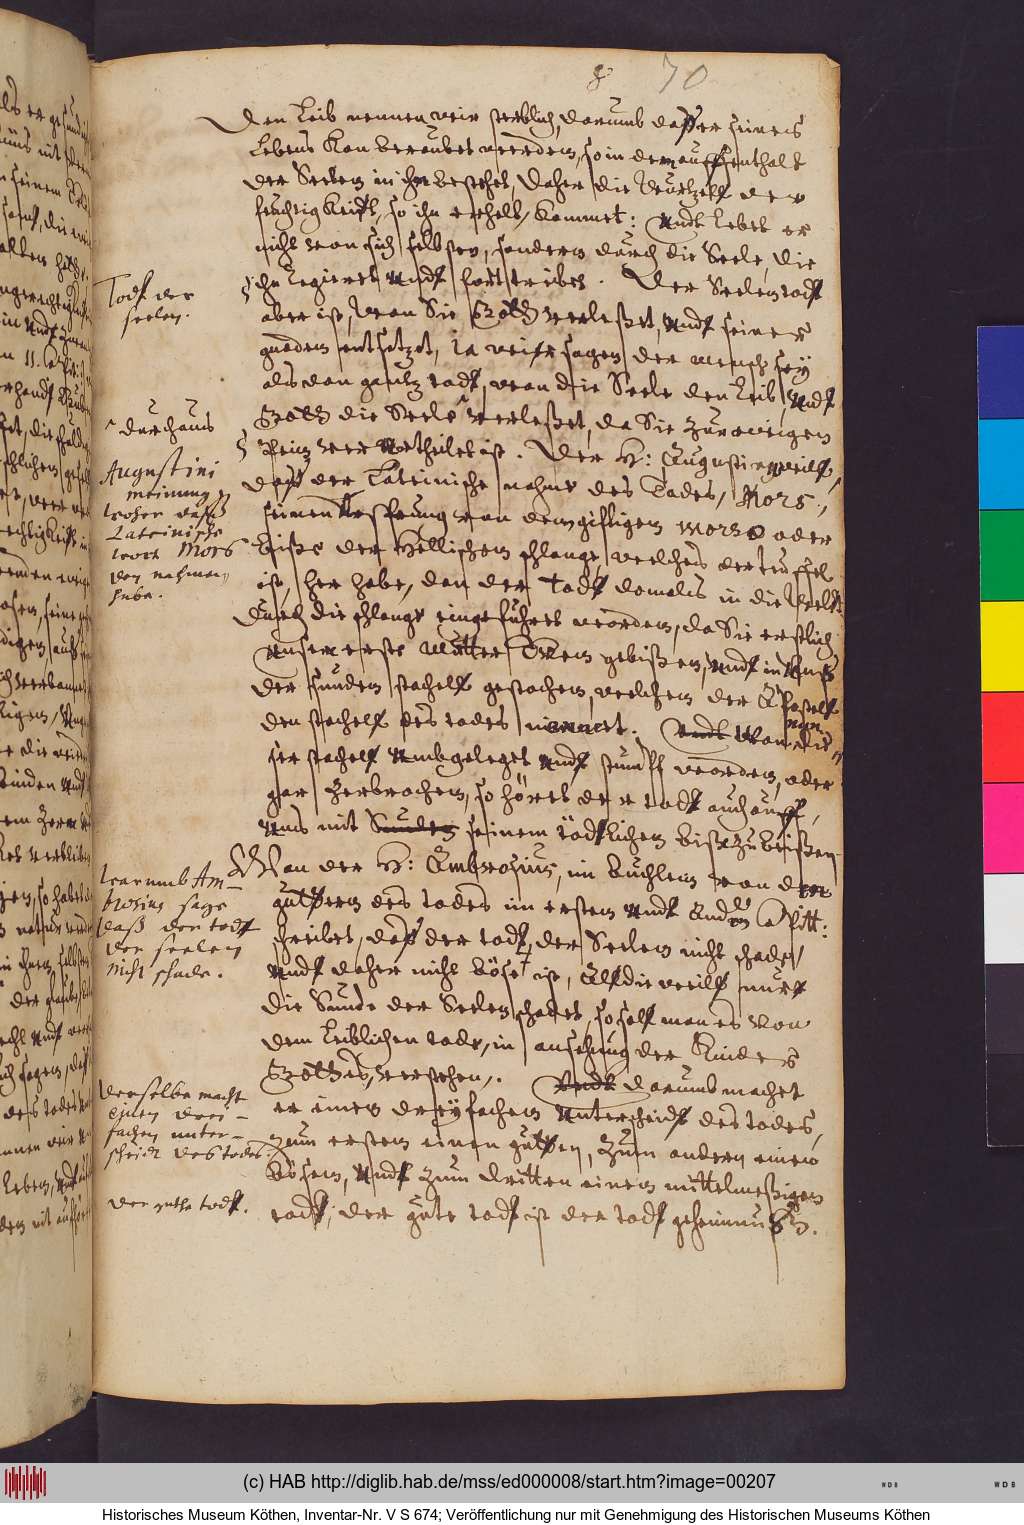 8 70
Den Leib nennen wir sterblich, darumb daß er seines
Lebens Kan beraubet werden, so in dem auffenthalt
der Seelen in ihm bestehet, daher die Wurtzell der
feuchtigkeitt, so ihn erhelt, kommet: Undt lebet er
nicht von sich selbsten, sondern durch die Seele, die
ihn regieret Undt forttreibet. Der Seelen todt
aber ist, Wan Sie Gott verleßet, Undt seiner
gnaden entsetzet, Ja wir sagen der mensch sey
als dan gantz todt, wan die Seele den Leib, Undt
Gott die Seele verleßet, da Sie zur ewigen
Pein verurtheilet ist. Der H: Augustinus will,
daß der Lateinische nahme des Todes, Mors,
seinen Ursprung von dem gifftigen morsu oder
biße der Hellischen schlange, welches der teuffel
ist, her habe, dan der Todt domals in die Welt
durch die schlange eingefuhret worden, da Sie erstlich
Unsere erste Mutter Evam gebißen, Undt in Uns
der sunden stachell gestochen, welchen der Apostell
den stachell des todes nennet. Undt Wan nun die
ser stachell Umbgeleget Undt stumpff worden, oder
gar Zerbrochen, so höret der todt auch auff,
Uns mit Sunden seinem tödtlichen biße zu beißen
Wan der H: Ambrosius, im buchlein von dem
guttern des todes im ersten Undt Andern Capitt:
schreibet, daß der todt, der Seelen nicht schade,
Undt daher nicht böse ist, Alldieweill nuhr
die Sunde der Seelen schadet, so soll man es von
dem Leiblichen tode, in ansehung der Kinder
Gottes, verstehen. Undt darumb machet
er einen dreyfachen Unterscheidt des todes,
zum ersten einen gutten, Zum andern einen
bösen, Undt Zum dritten einen mittelmeßigen
todt, der gute todt ist der todt geheimnuß.
Todt der
seelen.
durchaus
Augustini
meinung
woher daß
Lateinische
wort Mors
den nahmen
habe.
warumb Am-
brosius sage
daß der todt
der seelen
nicht schade.
derselbe macht
einen drei-
fachen unter-
scheid des todes.
der guthe todt.
(c) HAB http://diglib.hab.de/mss/ed000008/start.htm?image=00207
WDB WDB
Historisches Museum Köthen, Inventar-Nr. V S 674; Veröffentlichung nur mit Genehmigung des Historischen Museums Köthen